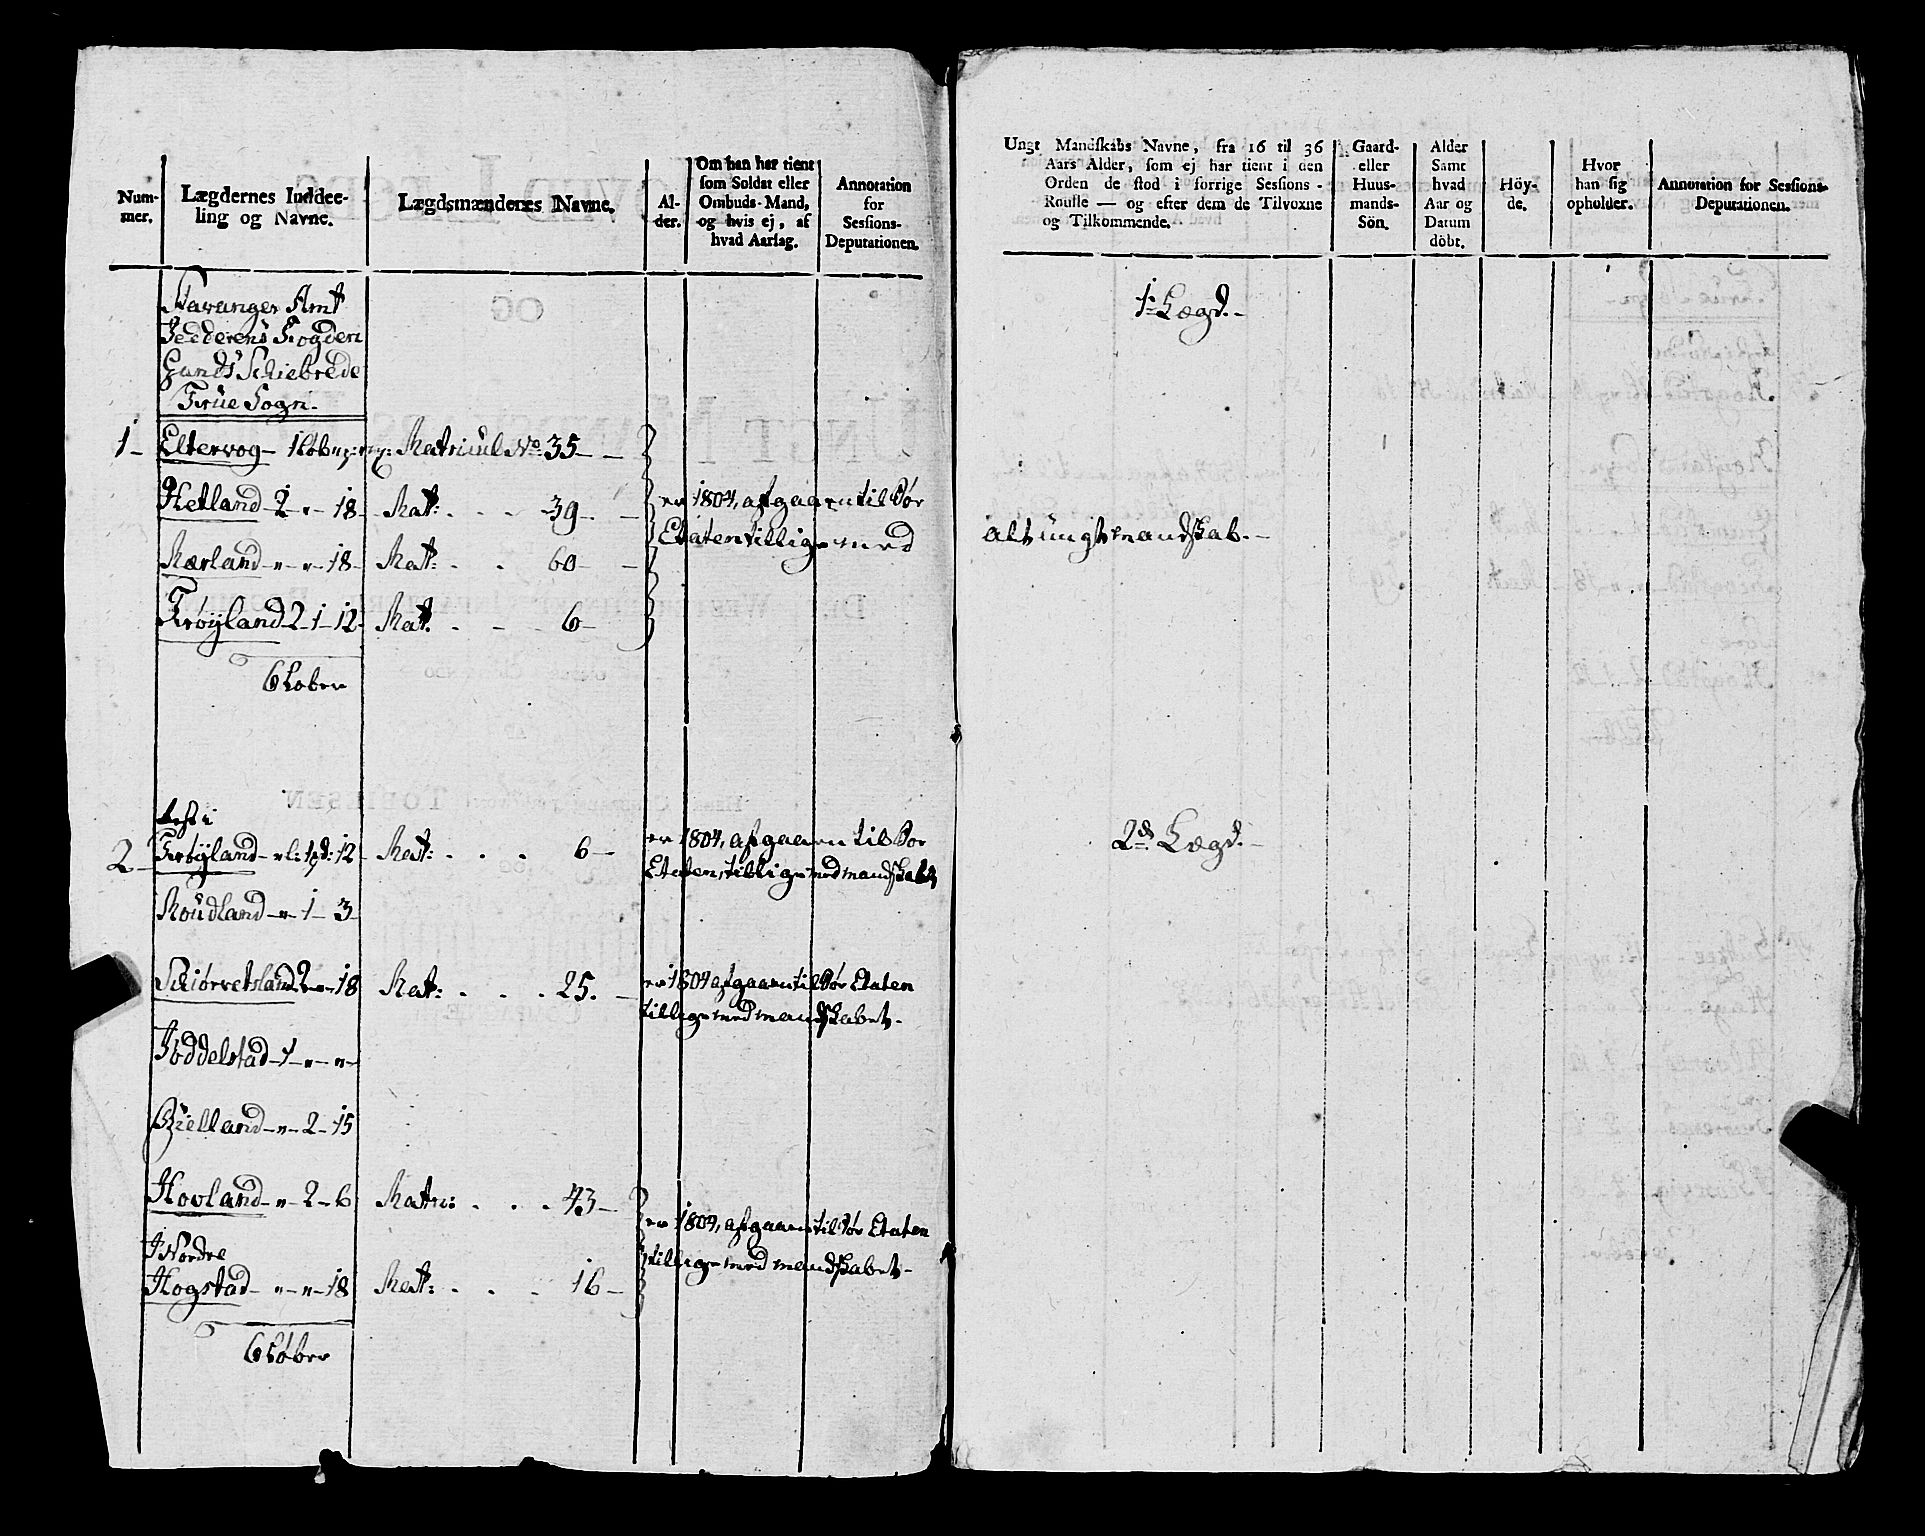 Num-
mer.
Lægdernes Inddee-
ling og Navne.
Lægdsmændenes Navne.
Al-
der.
Om han har tient
som Soldat eller
Ombuds-Mand,
og hvis ej, af
hvad Aarsag.
Annotation
for
Sessions-
Deputationen.
Stavanger Amt
Jedderens Fogderi
Gands Schibrede
Frue Sogn.
1 - Eltervog - 1 Matricul No 35 -
Hetland - 2 " - 18 - Mat: . . . 39 -
Mæland - " - " - 18 - Mat: . . 60 -
Frøyland - 2 - 1 - 12 - Mat. . - 6 -
er 1804, afgaaen til Søe
Etaten tillige med
6 Løber
Rest i
2 - Frøyland - 12 - Mat: . . . 6 -
er 1804, afgaaen til Søe
Etaten, tillige med mandskabet
Roudland - " - 1 - 3 -
Schiørvetsland 2 - " - 18 Mat: . . . 25. -
er 1804 afgaaen til Søe Etaten
tillige med mandskabet -
Foddelstad - 1 - " - " -
Bielland - " - 2 - 15
Hovland - " - 2 - 6 Matr: . . . 43 -
I Nordre
Hogstad - " - " - 18 - Mat: . . . 16 -
er 1804, afgaaen til Søe Etaten
tillige med mandskabet -
6 Løber
Ungt Mandskabs Navne, fra 16 til 36
Aars Alder, som ej har tient i den
Orden de stod i forrige Sessions-
Roulle — og efter dem de Tilvoxne
og Tilkommende.
Gaard-
eller
Huus-
mands-
Sön.
Alder
Samt
hvad
Aar og
Datum
döbt.
Höy-
de.
Hvor
han sig
opholder.
Annotation for Sessions-
Deputationen.
1te Lægd. -
alt ungt mandskab. -
2d. Lægd. -